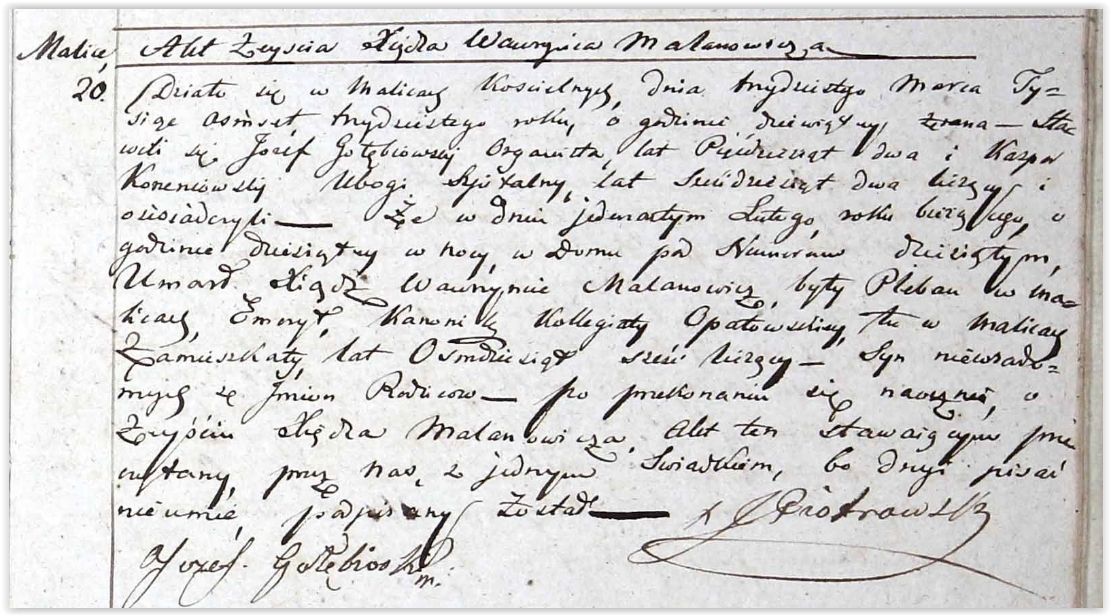 Malice, Akt Zeyścia Xiędza Wawrzyńca Malanowicza
20. Działo się w Malicach Kościelnych, dnia trzydziestego Marca Ty=
siąc osmset trzydziestego roku, o godzinie dziewiątey zrana — Sta
wili się Jozef Gołębiowski Organista, lat Pięćdziesiąt dwa i Kasper
Koreniowski Ubogi Szpitalny, lat Sześćdziesiąt dwa liczący i
oświadczyli — Że w dniu jedenastym Lutego, roku bieżącego, o
godzinie dziesiątey w nocy, w Domu pod Numerem dziesiątym,
Umarł Xiądz Wawrzyniec Malanowicz, były Pleban w Ma=
licach, Emeryt, Kanonik Kollegiaty Opatowskiey, tu w Malicach
Zamieszkały, lat Osmdziesiąt sześć liczący — Syn niewiado=
mych z Jmion Rodzicow — po przekonaniu się naocznie, o
Zeyściu Xiędza Malanowicza, Akt ten Stawaiącym prze
czytany, przez nas, z jednym Swiadkiem, bo drugi pisać
nieumie, podpisany został — X J Piotrowski
Jozef Gołębioski